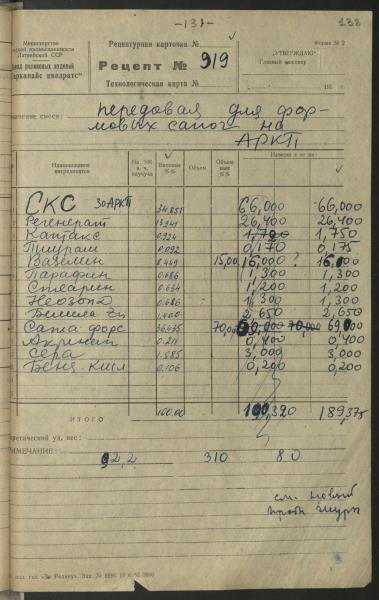 -131-
138
Министерство
промышленности
Латвийской ССР
завод резиновых изделий
„Сарканайс квадратс"
Рецептурная карточка №
Форма № 2
Рецепт № 919
„УТВЕРЖДАЮ"
Главный инженер
Технологическая карта №
195
Назначение смеси: передовая для фор-
мовых сапог на
АРКП
Наименование ингредиентов
На 100 в. ч. каучука
Весовые %%
Объем
Объемные %%
Навеска в кг на:
СКС 30 АРКП 34.851 66,000 66,000
Регенерат 13.941 26,400 26,400
Каптакс 0.924 1,700 1,750
Тиурам 0.092 0,170 0,175
Вазелин 8.449 15,00 16,000 ? 16,000
Парафин 0.686 1,300 1,300
Стеарин 0.634 1,200 1,200
Неозон 0.686 1,300 1,300
Белила Zn 1.400 2,650 2,650
Сажа форс 36.435 70,00 70,000 69,000
0.211 0,400 0,400
Сера 1.585 3,000 3,000
Бенз. кисл 0.106 0,200 0,200
ИТОГО 100.00 189,320 189,375
Теоретический уд. вес:
ПРИМЕЧАНИЕ
92,2 310 8.0
см. новый